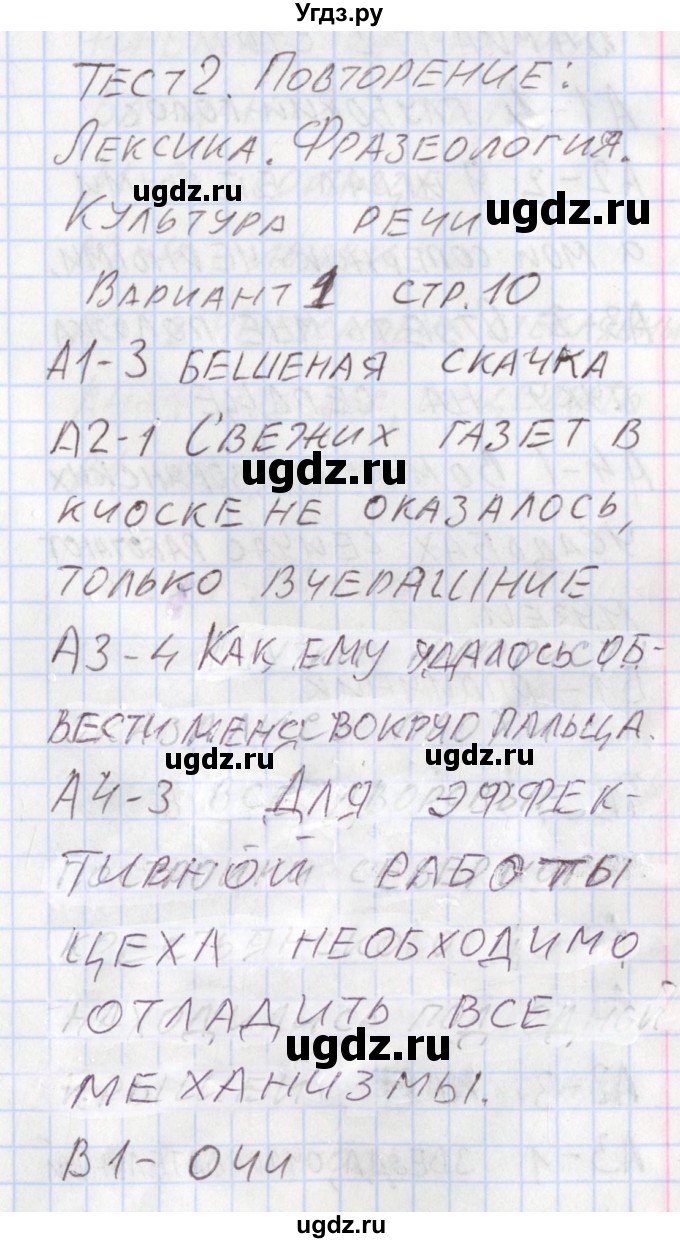 Угдз.ру
ТЕСТ 2. ПОВТОРЕНИЕ:
ЛЕКСИКА. ФРАЗЕОЛОГИЯ.
ugdz.ru
КУЛЬТУРА РЕЧИ ugdz.ru
ВАРИАНТ 1 СТР. 10
А1-3 БЕШЕНАЯ СКАЧКА
А2-1 СВЕЖИХ ГАЗЕТ В
ugdz.ru
КИОСКЕ НЕ ОКАЗАЛОСЬ,
ТОЛЬКО ВЧЕРАШНИЕ
А3-4 КАК ЕМУ УДАЛОСЬ ОБ-
ВЕСТИ МЕНЯ ВОКРУГ ПАЛЬЦА.
ugdz.ru ugdz.ru
А4-3 ДЛЯ ЭФФЕК-
ТИВНОЙ РАБОТЫ
ЦЕХА НЕОБХОДИМО
ОТЛАДИТЬ ВСЕ
ugdz.ru
МЕХАНИЗМЫ.
В1- ОЧИ
ugdz.ru